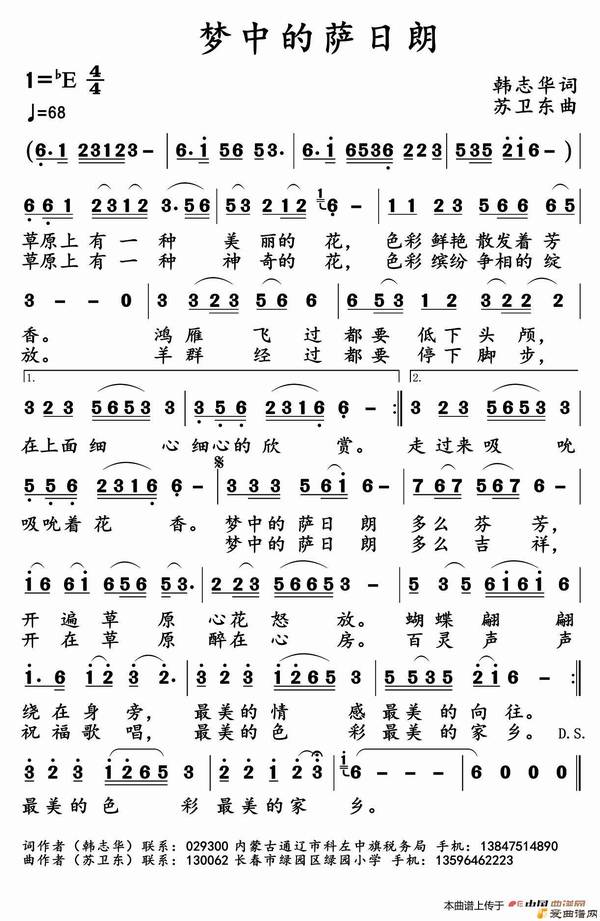 梦中的萨日朗
1=♭E 4/4
韩志华 词
♩=68
苏卫东 曲
(6·1 23123- | 6·i 56 53· | 6·i 6536 223 | 535 2i6- )
661 2312 3·56 | 53 212 i6 - | 11 23 56 6 65
草原上有一种 美丽的花，色彩鲜艳散发着芳
草原上有一种 神奇的花，色彩缤纷争相的绽
3 - - 0 3 | 3 323 5653 | 223 1265 3
香。 鸿雁 飞过都要低下头颅，
放。 羊群 经过都要停下脚步，
1. 2.
323 5653 3 | 356 2316 6 - :‖ 223 5653 3
在上面细 心细心的欣 赏。 走过来吸 吮
𝄋
556 2316 6 - | 333 561 6 - | 767 567 6 -
吸吮着花 香。梦中的萨日 朗 多么芬 芳，
梦中的萨日 朗 多么吉 祥，
i6 6i 656 53· | 223 5665 3 - | 5 35 6i6i 6
开遍草 原 心花怒 放。 蝴蝶翩 翩
开在草 原 醉在心 房。 百灵声 声
i·6 i2 3 2· | 3 23 1265 3 | 5 5535 21 6 - :‖
绕在身 旁，最美的情 感最美的向往。
祝福歌 唱，最美的色 彩最美的家乡。D.S.
3 23 1265 3 | 2·2 12 3 3 | i6 - - - | 6 0 0 0 ‖
最美的色 彩最美的家 乡。
词作者（韩志华）联系：029300 内蒙古通辽市科左中旗税务局 手机：13847514890
曲作者（苏卫东）联系：130062 长春市绿园区绿园小学 手机：13596462223
本曲谱上传于 中国曲谱网
爱曲谱网